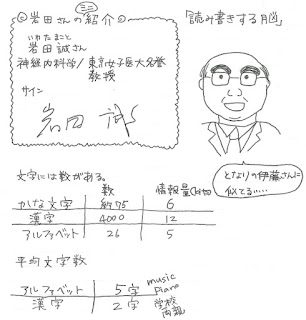 岩田さんのミニ紹介
いわた まこと
岩田 誠さん
神経内科学/東京女子医大名誉教授
サイン
岩田 誠
「読み書きする脳」
となりの伊藤さんに似てる‥‥
文字には数がある。
数 情報量(bit)
かな文字 約75 6
漢字 4000 12
アルファベット 26 5
平均文字数
アルファベット 5字 music piano
漢字 2字 学校 両親